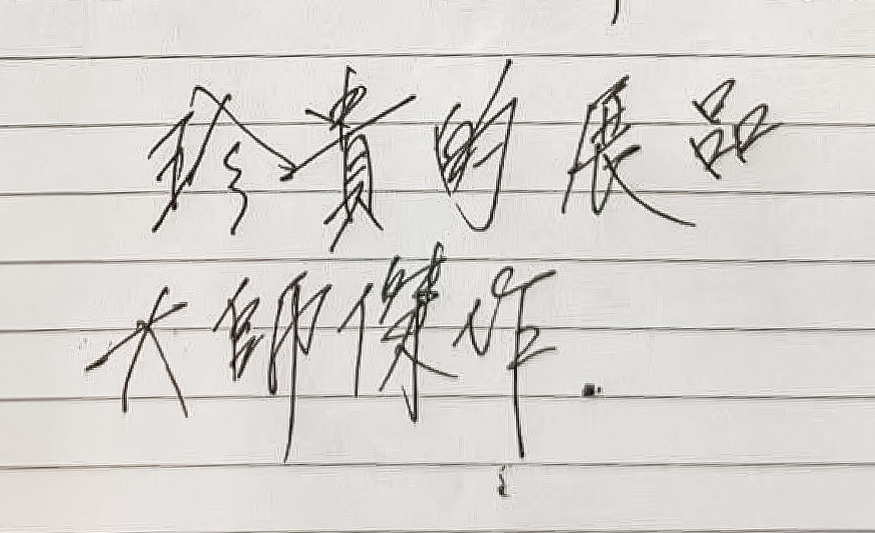 珍貴的展品
大師傑作.